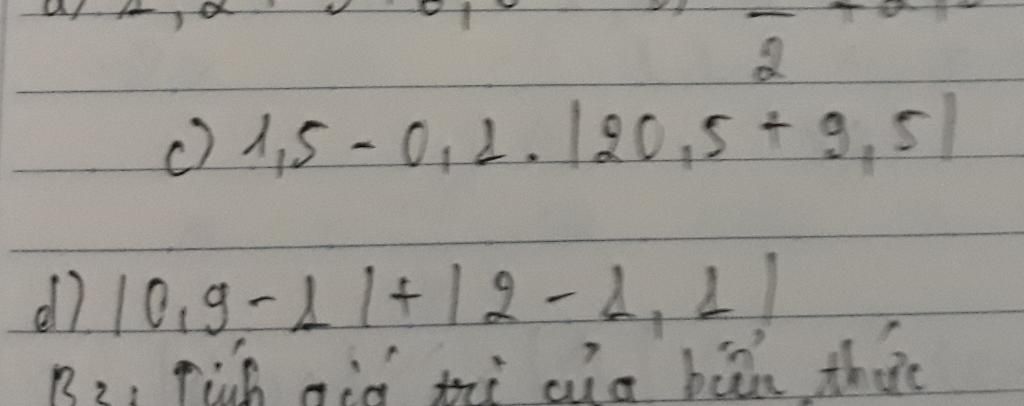 2
c) 1,5 - 0,1 . |20,5 + 9,5|
d) |0,9 - 1| + |2 - 1,1|
B2: Tính giá trị của biểu thức